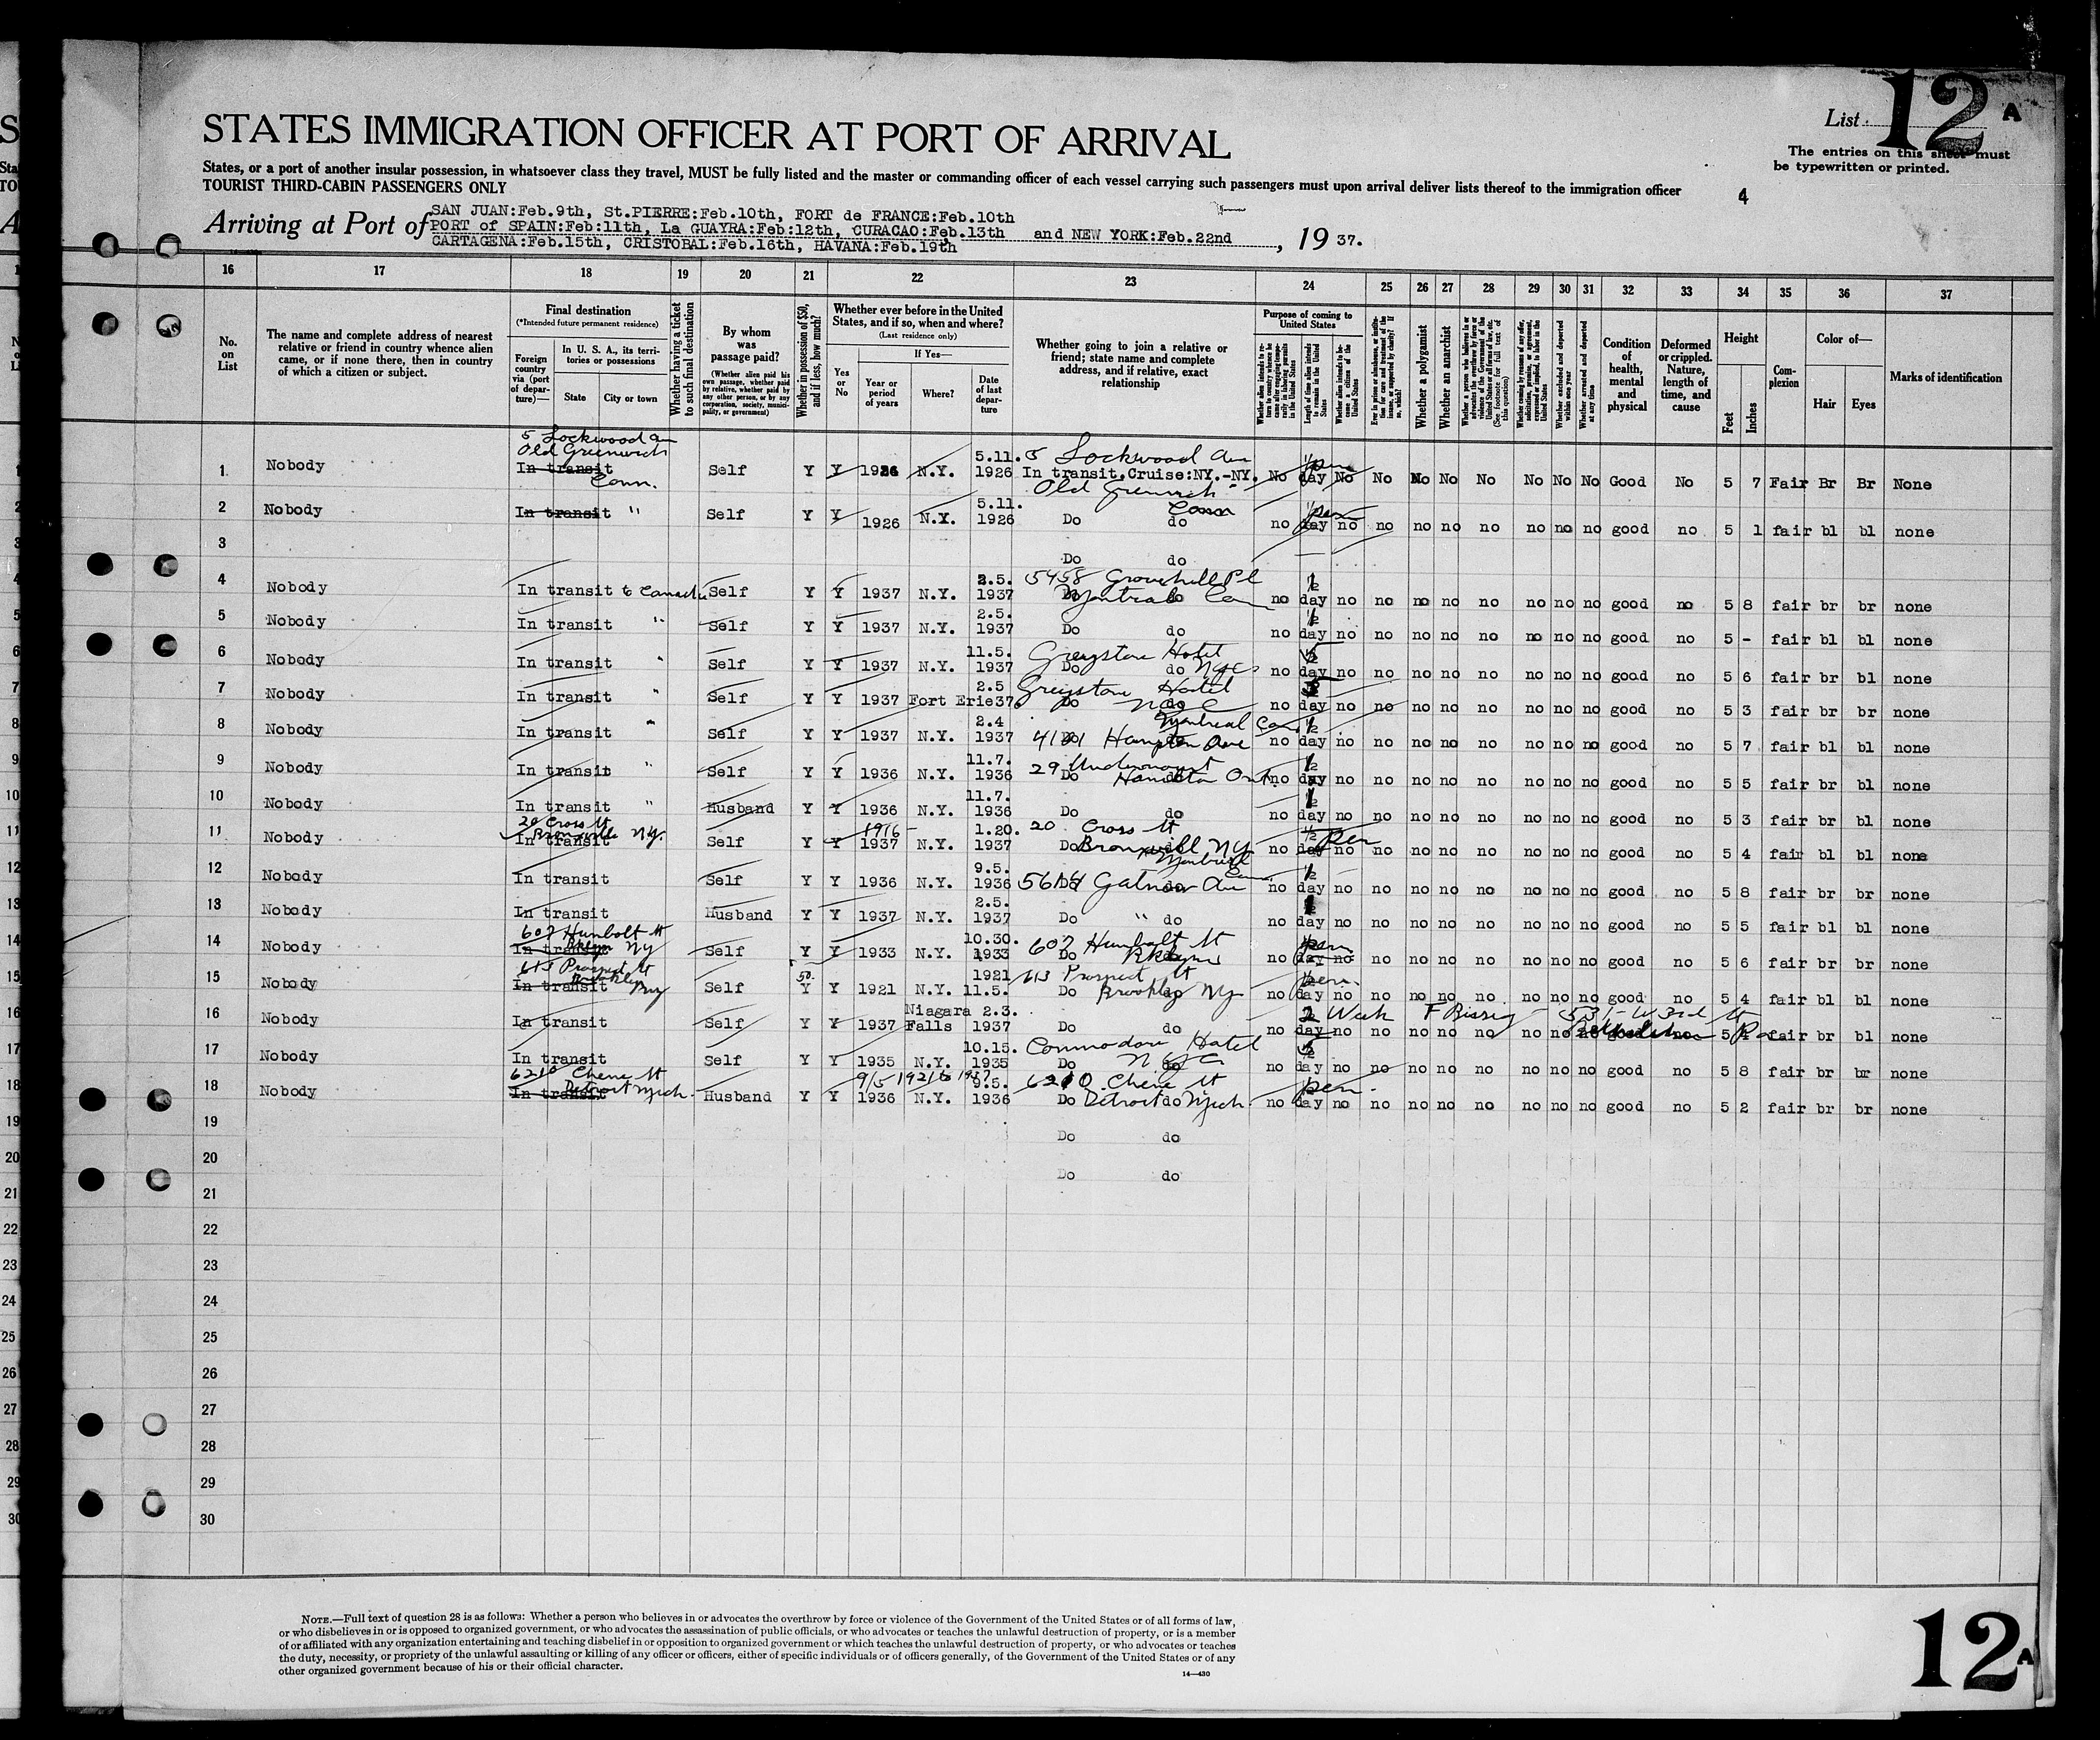 List 12 A
STATES IMMIGRATION OFFICER AT PORT OF ARRIVAL
The entries on this sheet must
be typewritten or printed.
States, or a port of another insular possession, in whatsoever class they travel, MUST be fully listed and the master or commanding officer of each vessel carrying such passengers must upon arrival deliver lists thereof to the immigration officer
TOURIST THIRD-CABIN PASSENGERS ONLY
4
SAN JUAN:Feb.9th, St.PIERRE:Feb.10th, FORT de FRANCE:Feb.10th
Arriving at Port of PORT of SPAIN:Feb:11th, La GUAYRA:Feb:12th, CURACAO:Feb.13th and NEW YORK:Feb.22nd, 1937.
CARTAGENA:Feb.15th, CRISTOBAL:Feb.16th, HAVANA:Feb.19th
16 17 18 19 20 21 22 23 24 25 26 27 28 29 30 31 32 33 34 35 36 37
No. on List
The name and complete address of nearest relative or friend in country whence alien came, or if none there, then in country of which a citizen or subject.
Final destination
(*Intended future permanent residence)
Foreign country via (port of departure)—
In U. S. A., its territories or possessions
State City or town
Whether having a ticket to such final destination
By whom was passage paid?
(Whether alien paid his own passage, whether paid by relative, whether paid by any other person, or by any corporation, society, municipality, or government)
Whether in possession of $50, and if less, how much?
Whether ever before in the United States, and if so, when and where?
(Last residence only)
Yes or No
If Yes—
Year or period of years Where? Date of last departure
Whether going to join a relative or friend; state name and complete address, and if relative, exact relationship
Purpose of coming to United States
Length of time alien intends to remain in the United States
Whether alien intends to become a citizen of the United States
Whether a polygamist
Whether an anarchist
Whether excluded and deported within one year
Whether arrested and deported at any time
Condition of health, mental and physical
Deformed or crippled. Nature, length of time, and cause
Height
Feet Inches
Complexion
Color of—
Hair Eyes
Marks of identification
5 Lockwood
Old Greenwich
1 Nobody In transit Conn. Self Y Y 1926 N.Y. 5.11. 1926 5 Lockwood Ave In transit,Cruise:NY.-NY. Old Greenwich Conn No day No No No No No No No No Good No 5 7 Fair Br Br None
2 Nobody In transit " Self Y Y 1926 N.Y. 5.11. 1926 Do do no day no no no no no no no no good no 5 1 fair bl bl none
3 Do do
4 Nobody In transit to Canada Self Y Y 1937 N.Y. 2.5. 1937 5458 Grovehill Pl Montreal Can ½ no day no no no no no no no no good no 5 8 fair br br none
5 Nobody In transit " Self Y Y 1937 N.Y. 2.5. 1937 Do do ½ no day no no no no no no no no good no 5 - fair bl bl none
6 Nobody In transit " Self Y Y 1937 N.Y. 11.5. 1937 Greystone Hotel Do do NYC no day no no no no no no no no good no 5 6 fair br bl none
7 Nobody In transit " Self Y Y 1937 Fort Erie 2.5 37 Greystone Hotel NYC no day no no no no no no no no good no 5 3 fair br br none
8 Nobody In transit " Self Y Y 1937 N.Y. 2.4 1937 Montreal Can Hampton Ave ½ no day no no no no no no no no good no 5 7 fair bl bl none
9 Nobody In transit " Self Y Y 1936 N.Y. 11.7. 1936 29 Undermount Hamilton Ont ½ no day no no no no no no no no good no 5 5 fair br bl none
10 Nobody In transit " Husband Y Y 1936 N.Y. 11.7. 1936 Do do ½ no day no no no no no no no no good no 5 3 fair br bl none
11 Nobody 20 Cross St Bronxville N.Y. In transit Self Y Y 1916- 1937 N.Y. 1.20. 1937 20 Cross St Bronxville NY ½ per no day no no no no no no no no good no 5 4 fair bl bl none
12 Nobody In transit Self Y Y 1936 N.Y. 9.5. 1936 Montreal ½ no day no no no no no no no no good no 5 8 fair br br none
13 Nobody In transit Husband Y Y 1937 N.Y. 2.5. 1937 Do " do no day no no no no no no no no good no 5 5 fair bl bl none
14 Nobody 607 Humbolt St Bklyn NY In transit Self Y Y 1933 N.Y. 10.30. 1933 607 Humbolt St Bklyn per no day no no no no no no no no good no 5 6 fair br br none
15 Nobody 613 Prospect St Brooklyn NY In transit Self 50. Y Y 1921 N.Y. 1921 11.5. 613 Prospect St Do Brooklyn NY do per. no day no no no no no no no no good no 5 4 fair bl bl none
16 Nobody In transit Self Y Y 1937 Niagara Falls 2.3. 1937 Do do 2 Week F Bissig - 531 - W 3rd St Bethlehem Pa no day no no no no no no no no good no 5 4 fair br bl none
17 Nobody In transit Self Y Y 1935 N.Y. 10.15. 1935 Commodore Hotel NYC no day no no no no no no no no good no 5 8 fair br br none
18 Nobody 6210 Chene St Detroit Mich. In transit Husband Y Y 9/5 1921 to 1937 1936 N.Y. 9.5. 1936 6210 Chene St Do Detroit do Mich. per. no day no no no no no no no no good no 5 2 fair br br none
19 Do do
20 Do do
21
22
23
24
25
26
27
28
29
30
NOTE.—Full text of question 28 is as follows: Whether a person who believes in or advocates the overthrow by force or violence of the Government of the United States or of all forms of law,
or who disbelieves in or is opposed to organized government, or who advocates the assassination of public officials, or who advocates or teaches the unlawful destruction of property, or is a member
of or affiliated with any organization entertaining and teaching disbelief in or opposition to organized government or which teaches the unlawful destruction of property, or who advocates or teaches
the duty, necessity, or propriety of the unlawful assaulting or killing of any officer or officers, either of specific individuals or of officers generally, of the Government of the United States or of any
other organized government because of his or their official character.
14—430
12 A